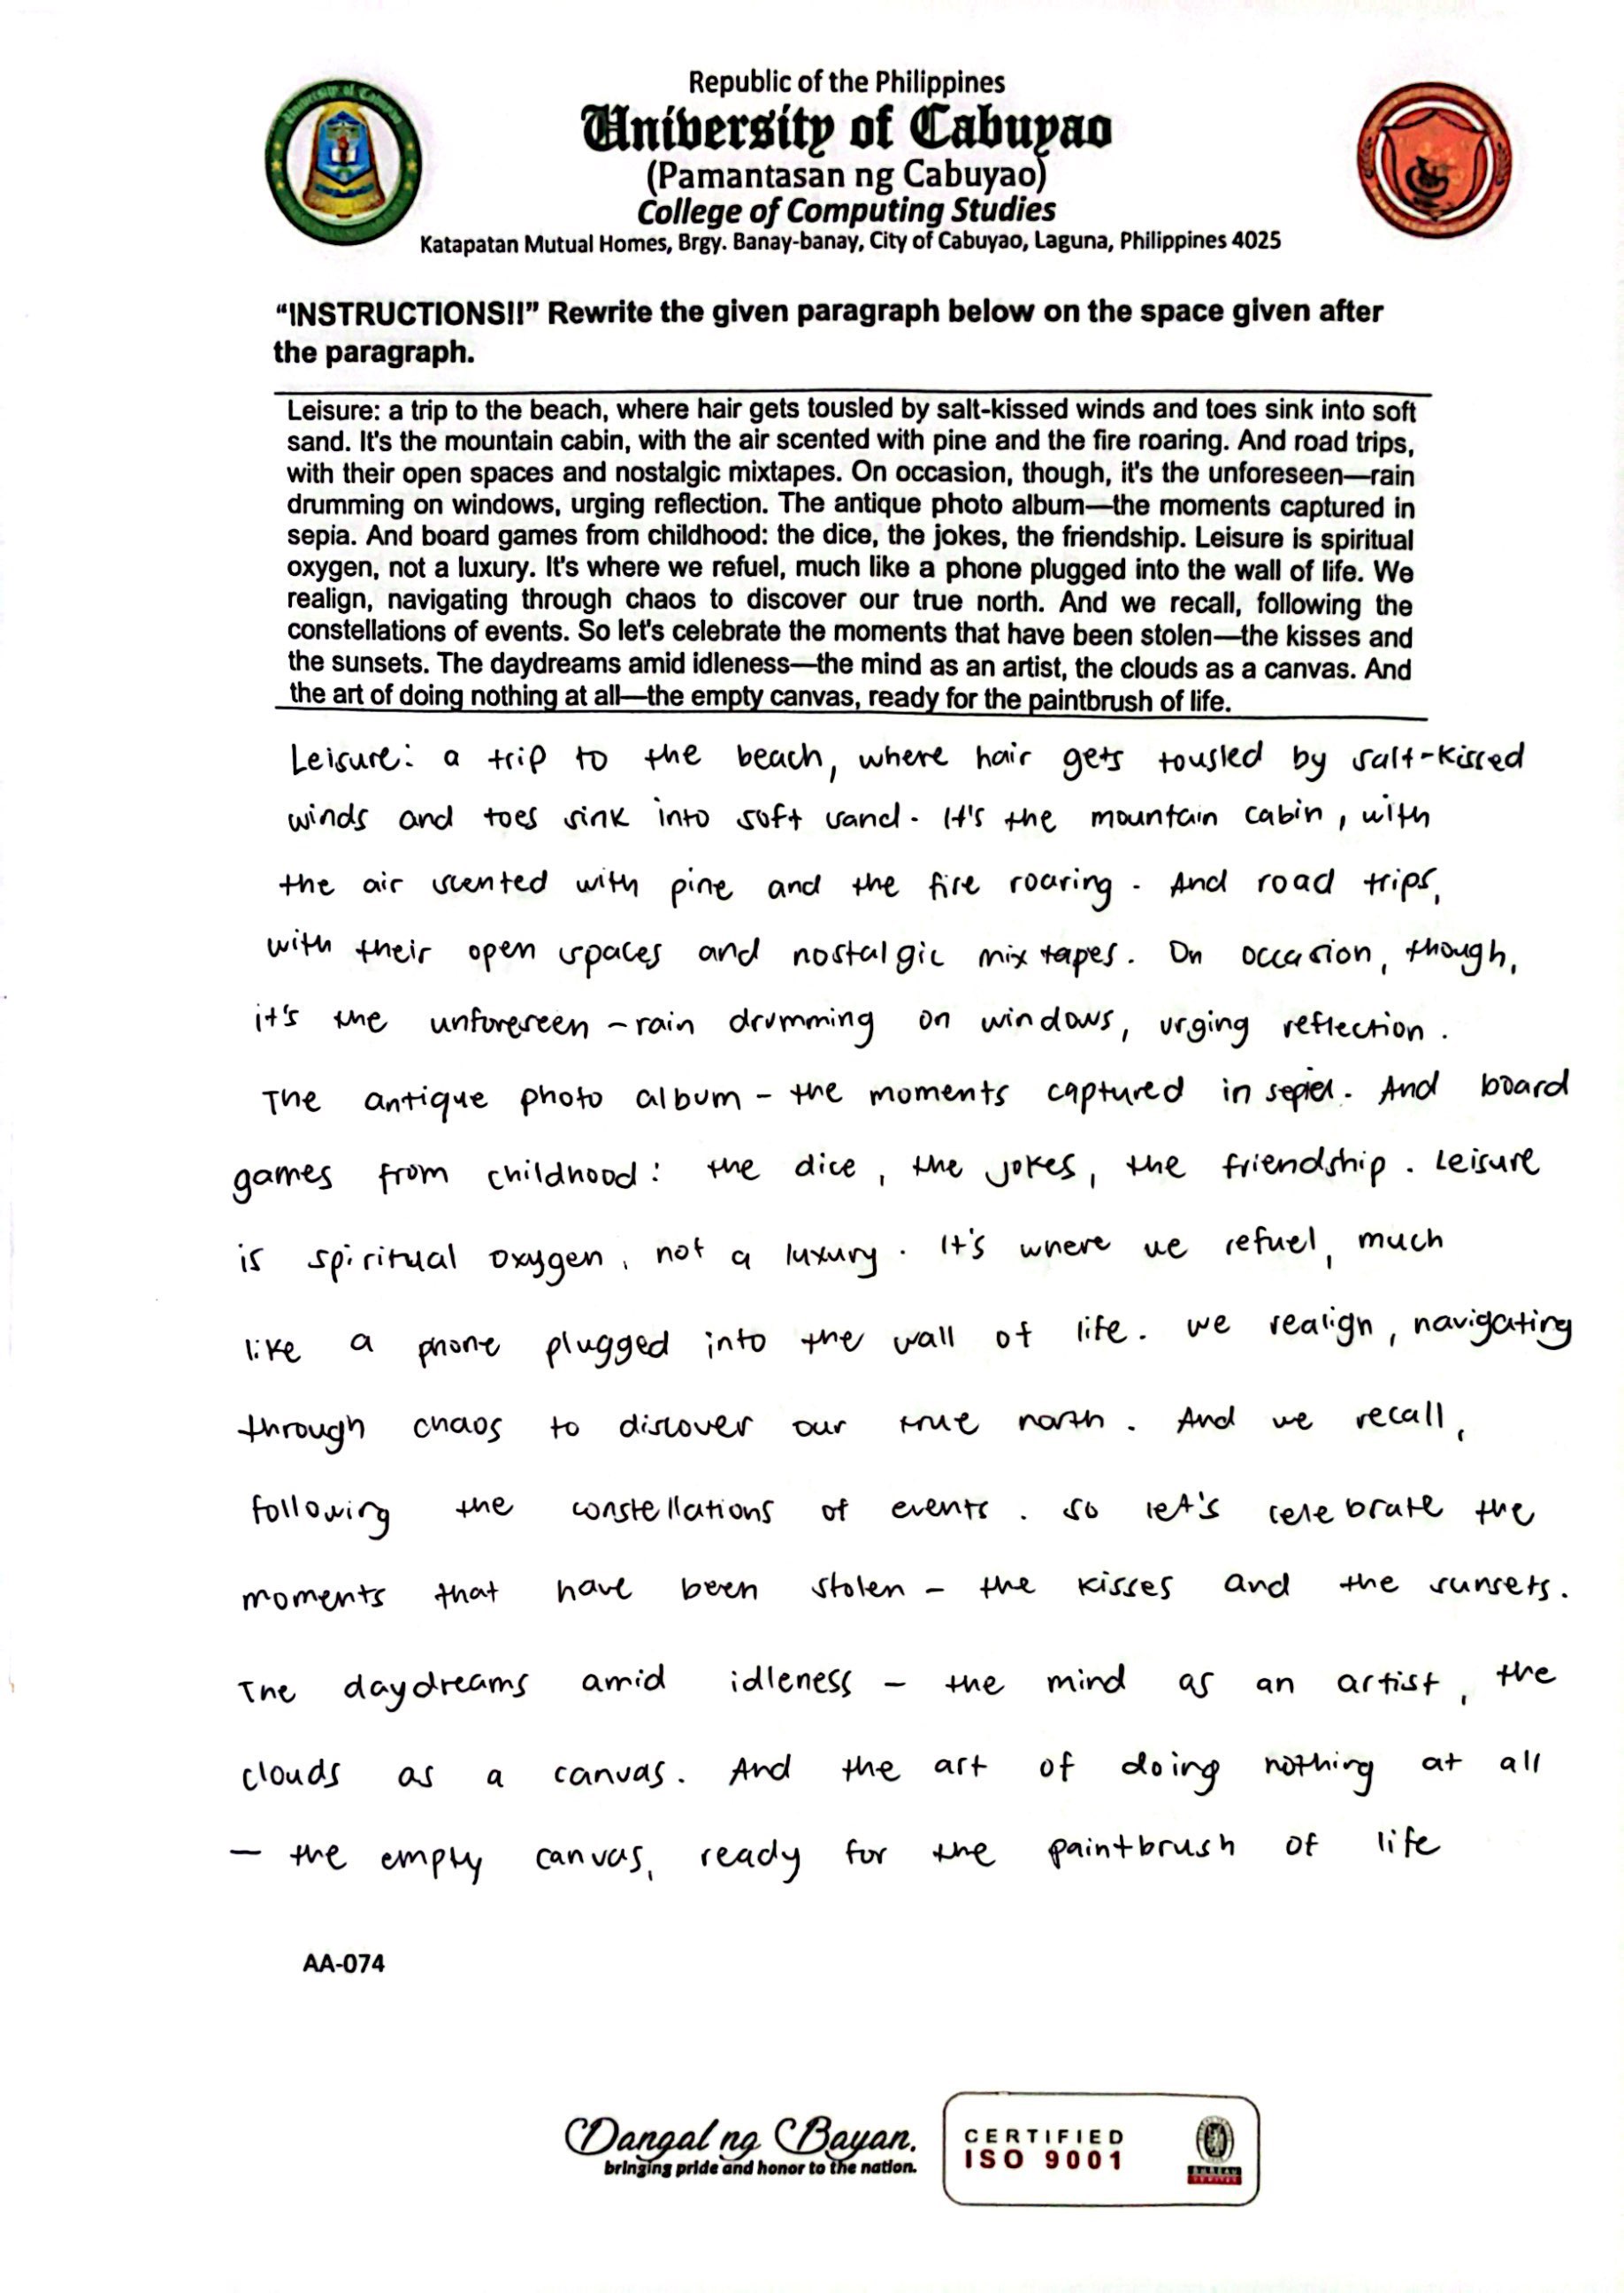 Republic of the Philippines
University of Cabuyao
(Pamantasan ng Cabuyao)
College of Computing Studies
Katapatan Mutual Homes, Brgy. Banay-banay, City of Cabuyao, Laguna, Philippines 4025
“INSTRUCTIONS!!” Rewrite the given paragraph below on the space given after
the paragraph.
Leisure: a trip to the beach, where hair gets tousled by salt-kissed winds and toes sink into soft
sand. It's the mountain cabin, with the air scented with pine and the fire roaring. And road trips,
with their open spaces and nostalgic mixtapes. On occasion, though, it's the unforeseen—rain
drumming on windows, urging reflection. The antique photo album—the moments captured in
sepia. And board games from childhood: the dice, the jokes, the friendship. Leisure is spiritual
oxygen, not a luxury. It's where we refuel, much like a phone plugged into the wall of life. We
realign, navigating through chaos to discover our true north. And we recall, following the
constellations of events. So let's celebrate the moments that have been stolen—the kisses and
the sunsets. The daydreams amid idleness—the mind as an artist, the clouds as a canvas. And
the art of doing nothing at all—the empty canvas, ready for the paintbrush of life.
Leisure: a trip to the beach, where hair gets tousled by salt-kissed
winds and toes sink into soft sand. It's the mountain cabin, with
the air scented with pine and the fire roaring. And road trips,
with their open spaces and nostalgic mixtapes. On occasion, though,
it's the unforeseen - rain drumming on windows, urging reflection.
The antique photo album - the moments captured in sepia. And board
games from childhood: the dice, the jokes, the friendship. Leisure
is spiritual oxygen, not a luxury. It's where we refuel, much
like a phone plugged into the wall of life. We realign, navigating
through chaos to discover our true north. And we recall,
following the constellations of events. So let's celebrate the
moments that have been stolen - the kisses and the sunsets.
The daydreams amid idleness - the mind as an artist, the
clouds as a canvas. And the art of doing nothing at all
— the empty canvas, ready for the paintbrush of life
AA-074
Dangal ng Bayan.
bringing pride and honor to the nation.
CERTIFIED
ISO 9001